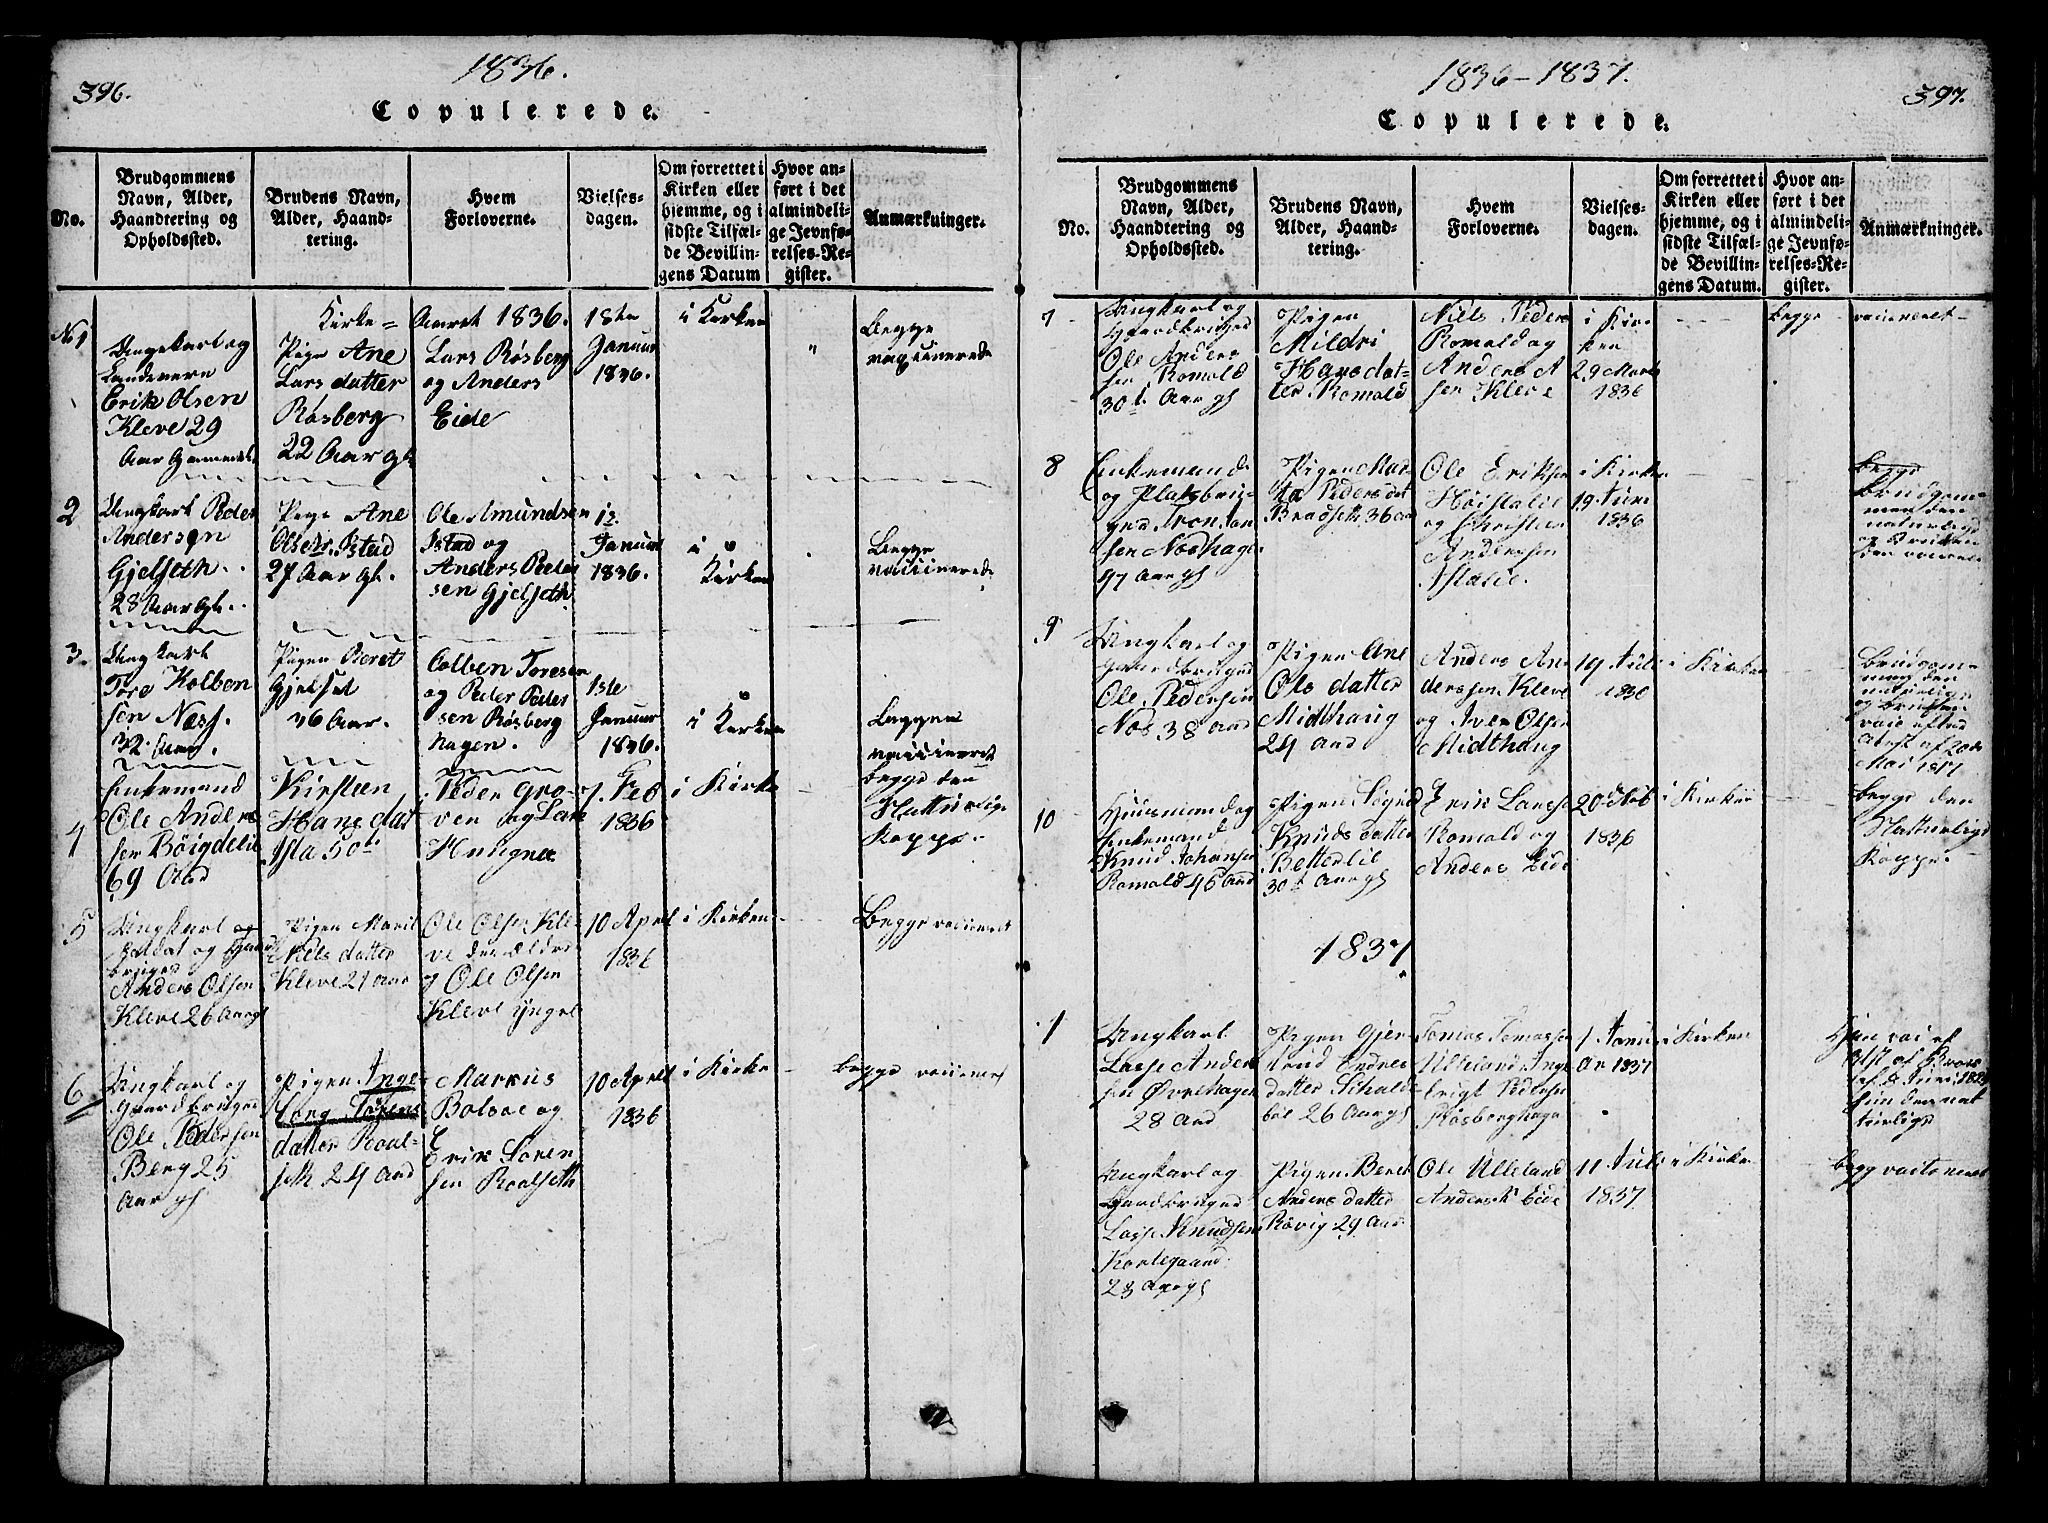 396.
1836.
Copulerede.
No.
Brudgommens Navn, Alder, Haandtering og Opholdssted.
Brudens Navn, Alder, Haandtering.
Hvem Forloverne.
Vielsesdagen.
Om forrettet i Kirken eller hjemme, og i sidste Tilfælde Bevillingens Datum
Hvor anført i det almindelige Jevnførelses-Register.
Anmærkninger.
Kirke=Aaret 1836.
No 1
Ungekarl og
Landevern
Erik Olsen
Kleve 29
Aar Gammel.
Pige Ane
Lars datter
Røsberg
22 Aar gl.
Lars Røsberg
og Anders
Eide
18de
Januar
1836.
i Kirken
"
Begge
vaccinerede
2
Ungkarl Peder
Andersen
Gjelseth.
28 Aar gl.
Pige Ane
Olsdtr. Istad
27 Aar gl.
Ole Amundsen
Istad og
Anders Peder
sen Gjelseth
Januar
1836.
i
Kirken
Begge
vaccinerede
3.
Ungkarl
Tore Kolben
sen Næss.
32 Aar.
Pigen Beret
Gjelset
Aar.
Colben Toresen
og Peder Peder
sen Røsberg
hagen.
1ste
Januar
1836.
i Kirken
Begge
vaccineret
4
Enkemand
Ole Anders
sen Bøigdelie
69 Aar
Kirsteen
Hans dat
Ista 50
Peder Gro-
ven og Lars
7. Feb
1836
i Kirke
begge den
Natturlige
Koppe.
5
Ungkarl og
Soldat og Gaard
bruger
Anders Olsen
Kleve 26 Aar gl
Pigen Marit
Niels datter
Kleve 21 Aar
Ole Olsen Kle
ve den ældre
og Ole Olsen
Kleve yngel
10 April
1836
i Kirken
Begge vaccineret
6
Ungkarl og
Gaardbruger
Ole Pedersen
Berg 25
Aar gl
Pigen Inge
borg Sørens
datter Roal-
seth 24 Aar
Markus
Bolsøe og
Erik Søren
sen Roalseth
10 April
1836
i Kirke
begge vaccineret
1836-1837.
397.
Copulerede.
No.
Brudgommens Navn, Alder, Haandtering og Opholdssted.
Brudens Navn, Alder, Haandtering.
Hvem Forloverne.
Vielsesdagen.
Om forrettet i Kirken eller hjemme, og i sidste Tilfælde Bevillingens Datum.
Hvor anført i det almindelige Jevnførelses-Register.
Anmærkninger.
7
Ungkarl og
Gaardbruger
Ole Anders
sen Romald
30 Aar gl
Pigen
Mildri
Hansdat-
ter Romald
Niels Peders
Romald og
Anders A
sen Kleve
i Kir
ken
29 Marts
1836
begge
vaccineret
8
Enkemand
og Pladsbru-
ger Tron Jon
sen Nøshagen
47 Aar gl
Pigen Mar
ta Peders dat
Bradseth 36 aar
Ole Eriksen
Høistalie
og Christen
Anderssen
Istalie.
i Kirken
19 Juni
1836
begge
Brudgom
men den
naturlige
og Bruden
9
Ungkarl og
Gaardbruger
Ole Pedersen
Nos 38 Aar
Pigen Ane
Ols datter
Midthaug
24 Aar
Anders An
derssen Kleve
og Iver Olsen
Midthaug
19 Juli
1836
i Kirken
Brudgom
men den
naturlige
og bruden
vac efter
Attest af 20de
Mai 1817
10
Huusmand og
Enkemand
Knud Johansen
Romald 46 Aar
Pigen Sigrid
Knuds datter
Betterlie
30 Aar gl
Erik Larsse
Romald og
Anders Eide
20 Feb
1836
i Kirken
begge den
Natturlige
Koppe.
1837
1
Ungkarl
Lasse Anders
sen Øvrehagen
28 Aar
Pigen Gjer
trud Endres
datter Sihald
bøl 26 Aar gl
Tomas Tomassen
Ulleland Inge
brigt Pedersen
Røsberghagen
1 Janu
ar 1837
i Kirken
Ungkarl og
Gaardbruger
Lasse Knudsen
Kortegaard
28 Aar gl
Pigen Beret
Anders datter
Røvig 29 Aar
Ole Ulleland
Anders Eide
11 Juli
1837
i Kirke
begge vaccineret